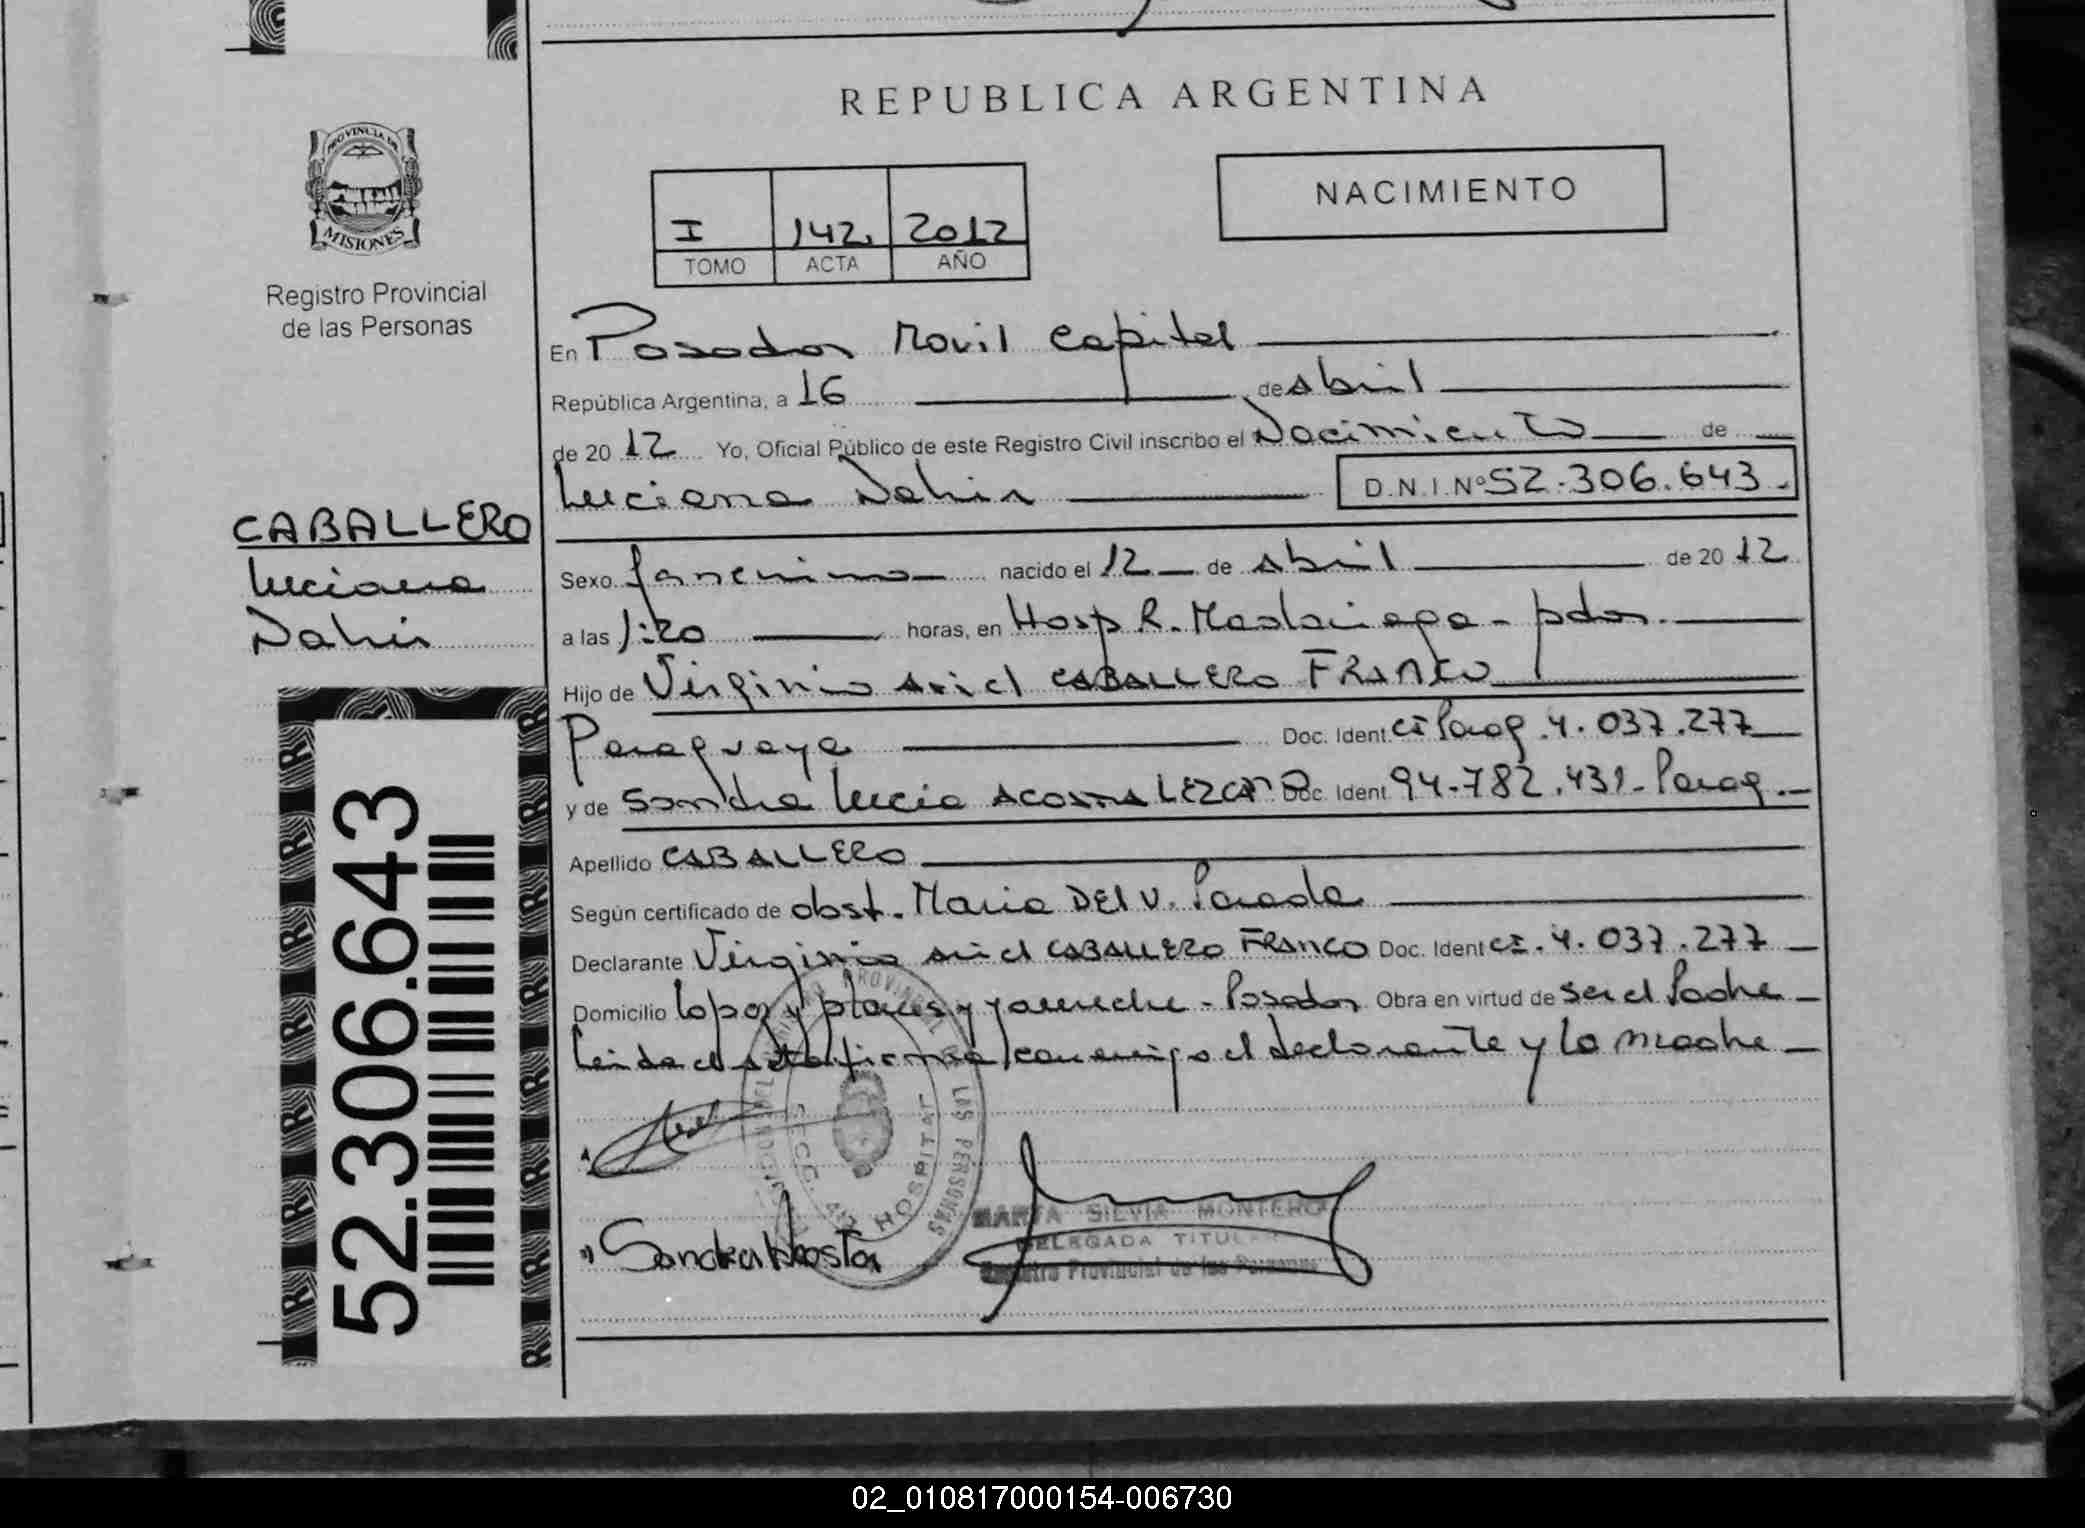 REPUBLICA ARGENTINA
NACIMIENTO
I 142. 2012
TOMO ACTA AÑO
PROVINCIA DE
MISIONES
Registro Provincial
de las Personas
En Posadas Movil Capital
República Argentina, a 16 de Abril
de 2012 Yo, Oficial Público de este Registro Civil inscribo el Nacimiento de
Luciana Nahir D.N.I.Nº 52.306.643.
CABALLERO
Luciana
Nahir
Sexo femenino nacido el 12 de Abril de 2012
a las 1:20 horas, en Hosp R. Madariaga - pdas.
Hijo de Virginio Ariel CABALLERO FRANCO
Paraguaya Doc. Ident. CI Parag. 4.037.277
y de Sandra Lucia ACOSTA LEZCANO Doc. Ident 94.782.431 - Parag.
Apellido CABALLERO
Según certificado de obst. Maria Del V. Parada
Declarante Virginio Ariel CABALLERO FRANCO Doc. Ident CI. 4.037.277
Domicilio y - Posadas Obra en virtud de ser el Padre
Leida el acta firma conmigo el declarante y la madre
52.306.643
PROVINCIAL DE LAS PERSONAS
HOSPITAL
Sandra Acosta
MARTA SILVIA MONTERO
DELEGADA TITULAR
Registro Provincial de las Personas
02_010817000154-006730